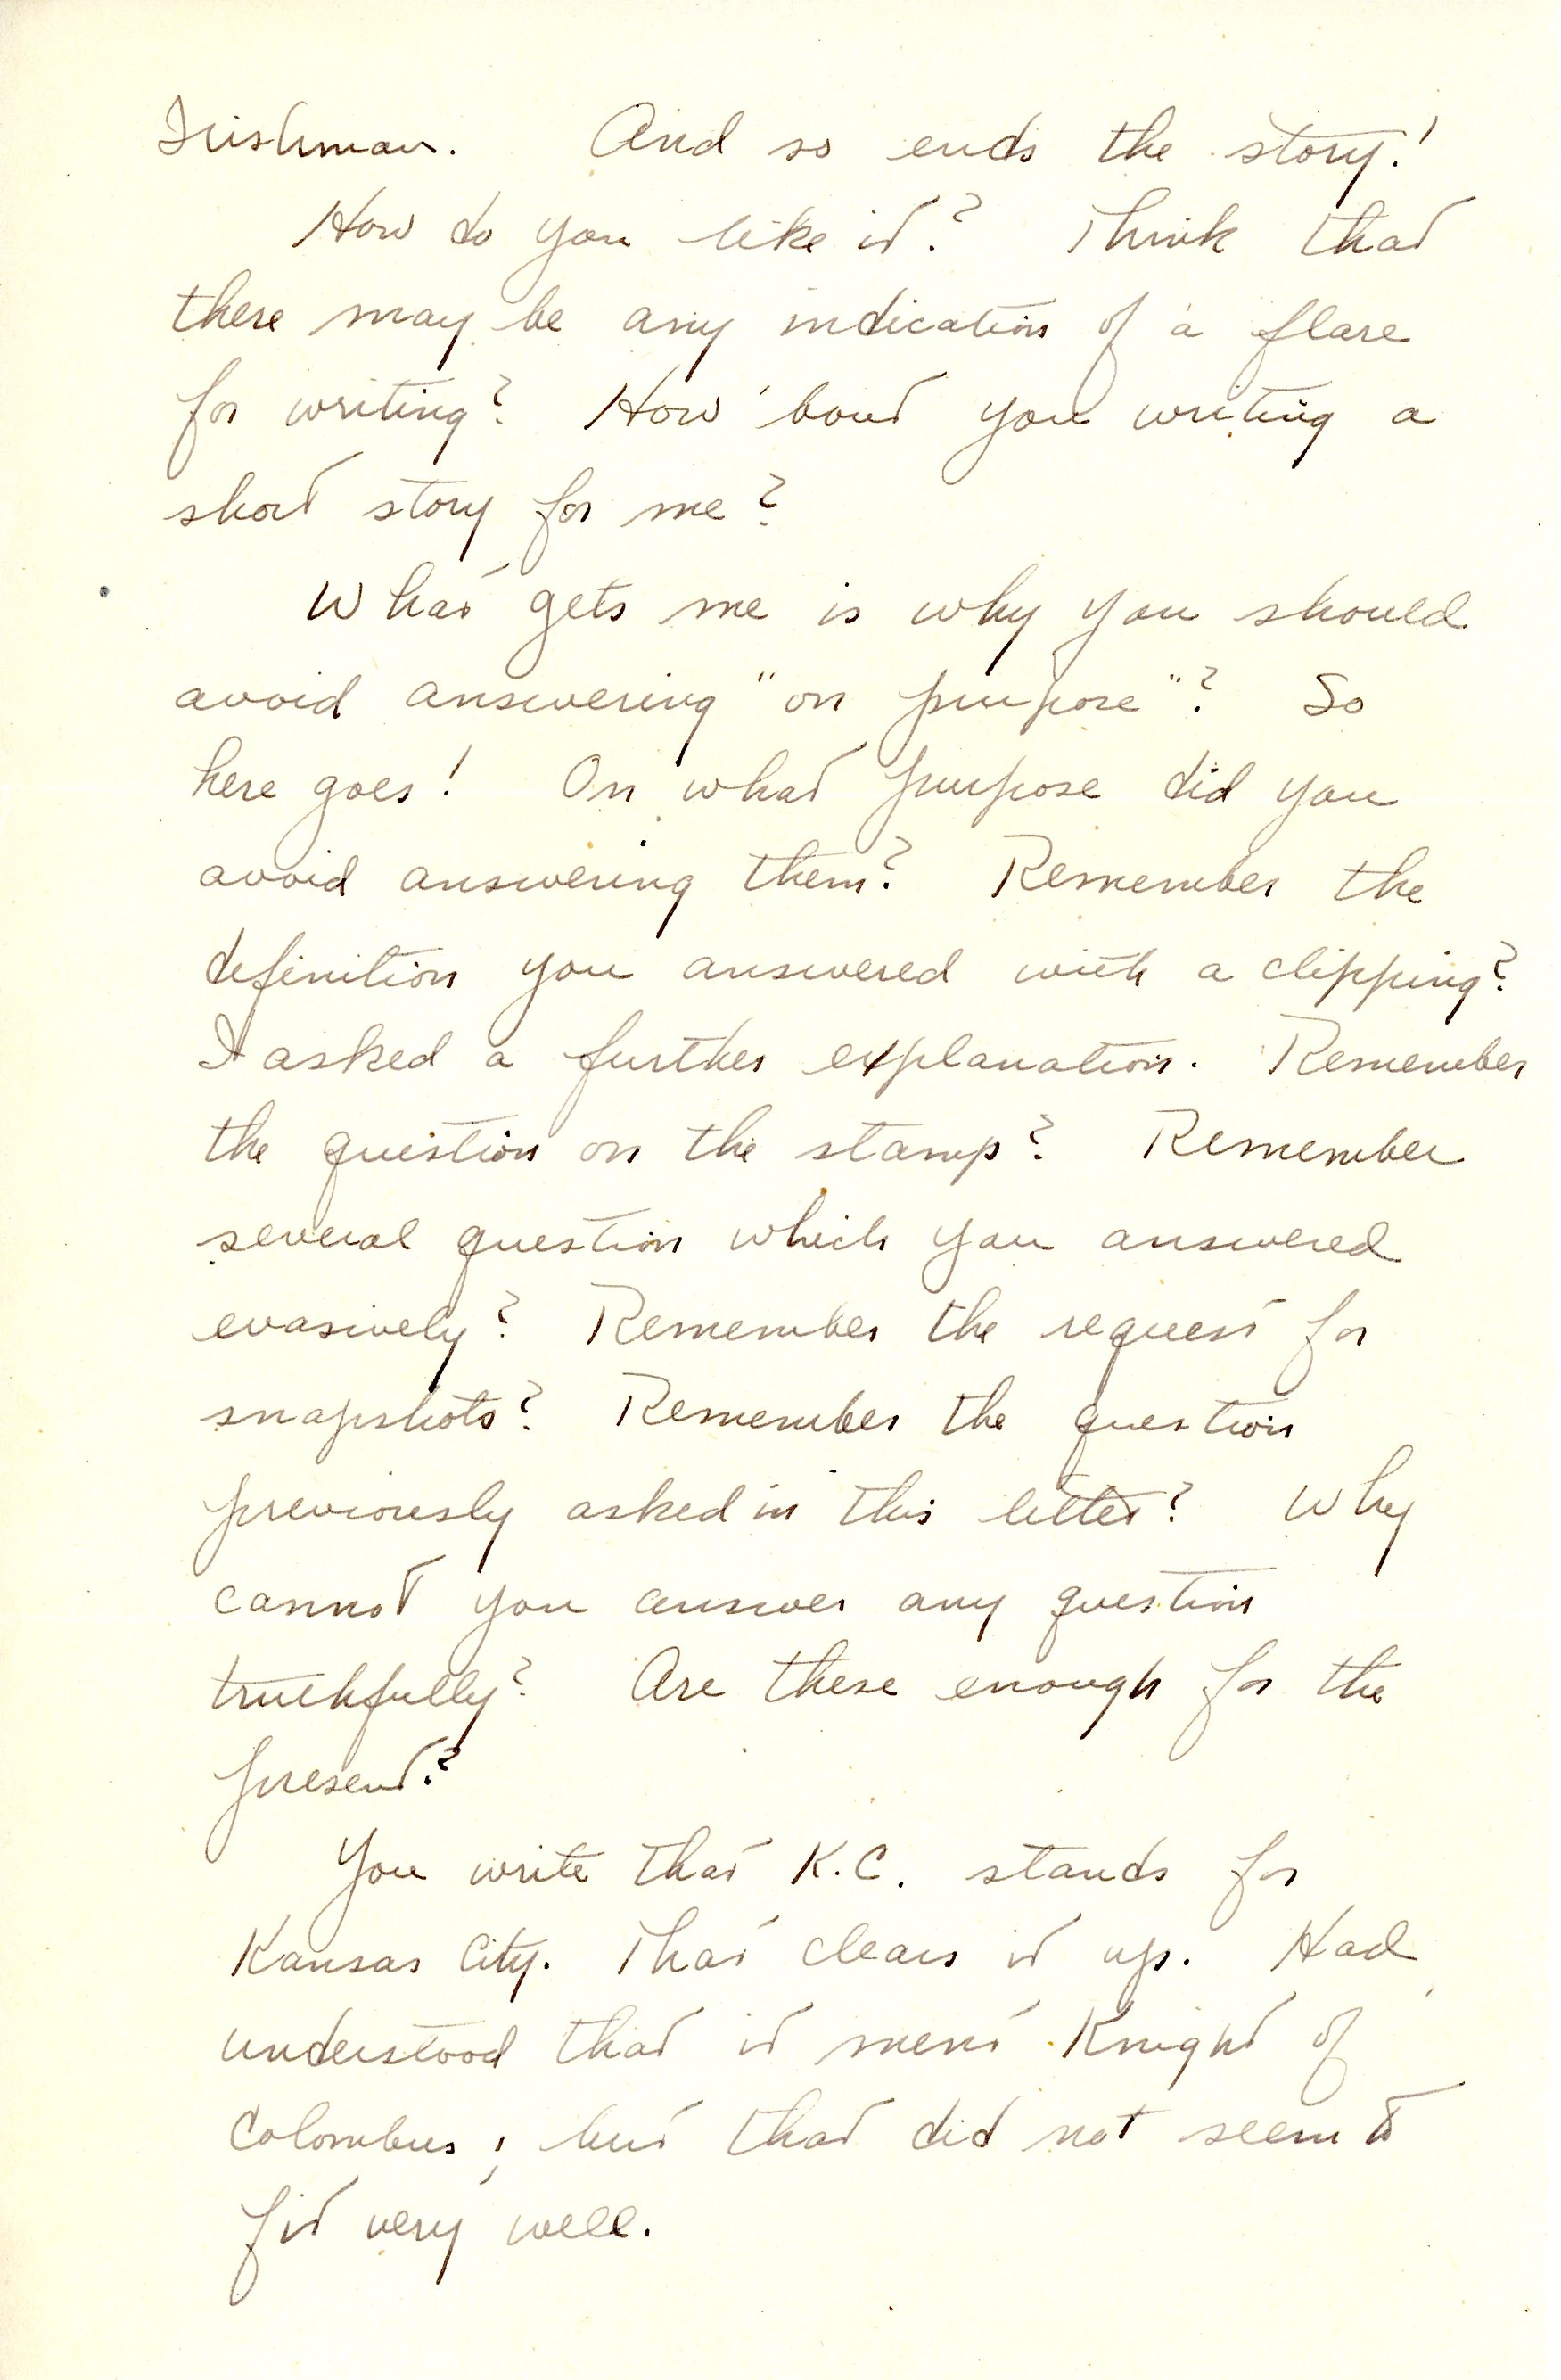 Irishman. And so ends the story!
How do you like it? Think that
there may be any indication of a flare
for writing? How 'bout you writing a
short story for me?
What gets me is why you should
avoid answering "on purpose"? So
here goes! On what purpose did you
avoid answering them? Remember the
definition you answered with a clipping?
I asked a further explanation. Remember
the question on the stamp? Remember
several question which you answered
evasively? Remember the request for
snapshots? Remember the question
previously asked in this letter? Why
cannot you answer any question
truthfully? Are these enough for the
present?
You write that K.C. stands for
Kansas City. That clears it up. Had
understood that it ment Knight of
Colombus; but that did not seem to
fit very well.